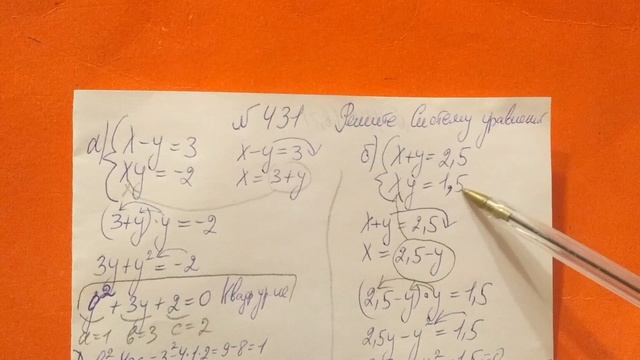 №431 Решите систему уравнений
а) { x-y=3
xy=-2
x-y=3
x=3+y
(3+y)·y=-2
3y+y²=-2
y²+3y+2=0 Квадр ур-ие
a=1 b=3 c=2
б) { x+y=2,5
xy=1,5
x+y=2,5
x=2,5-y
(2,5-y)·y=1,5
2,5y-y²=1,5